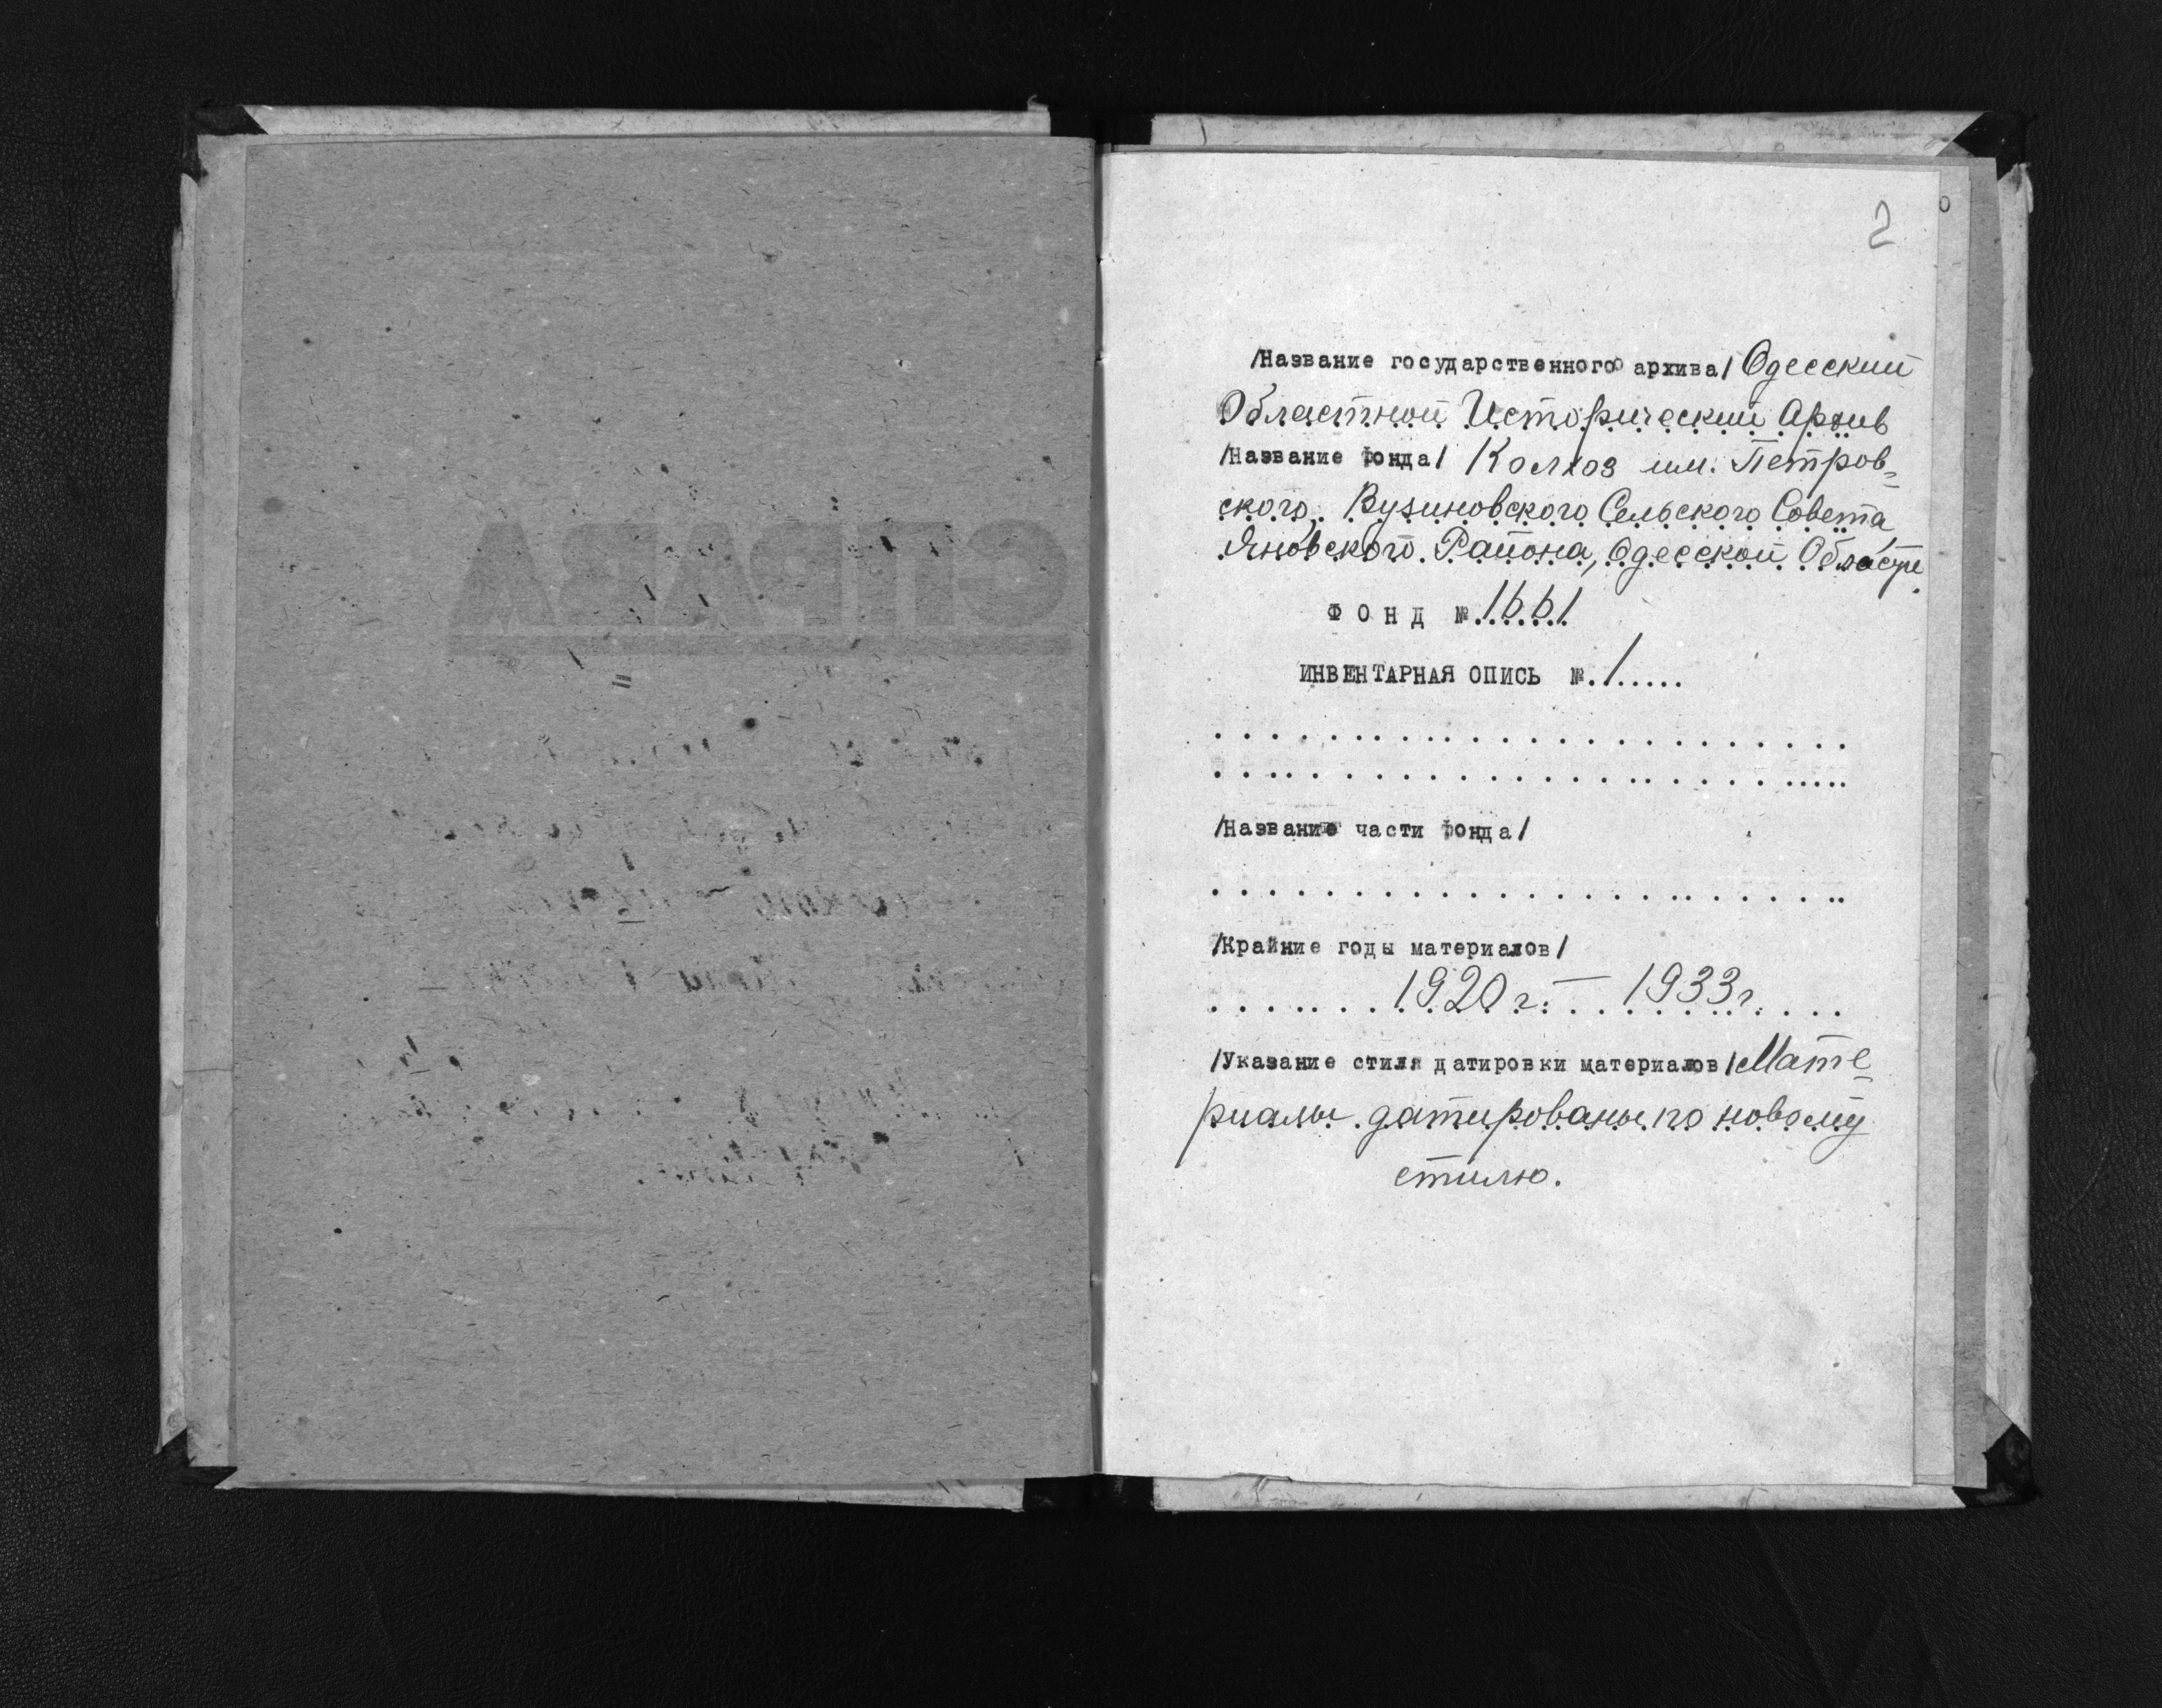 2
/Название государственного архива/ Одесский
Областной Исторический Архив
/Название фонда/ Колхоз им. Петров=
ского, Вузиновского Сельского Совета
Яновского Района, Одесской Области.
ФОНД № 1661
ИНВЕНТАРНАЯ ОПИСЬ № 1
/Название части фонда/
/Крайние годы материалов/
1920 г. — 1933 г.
/Указание стиля датировки материалов/ Мате=
риалы датированы по новому
стилю.